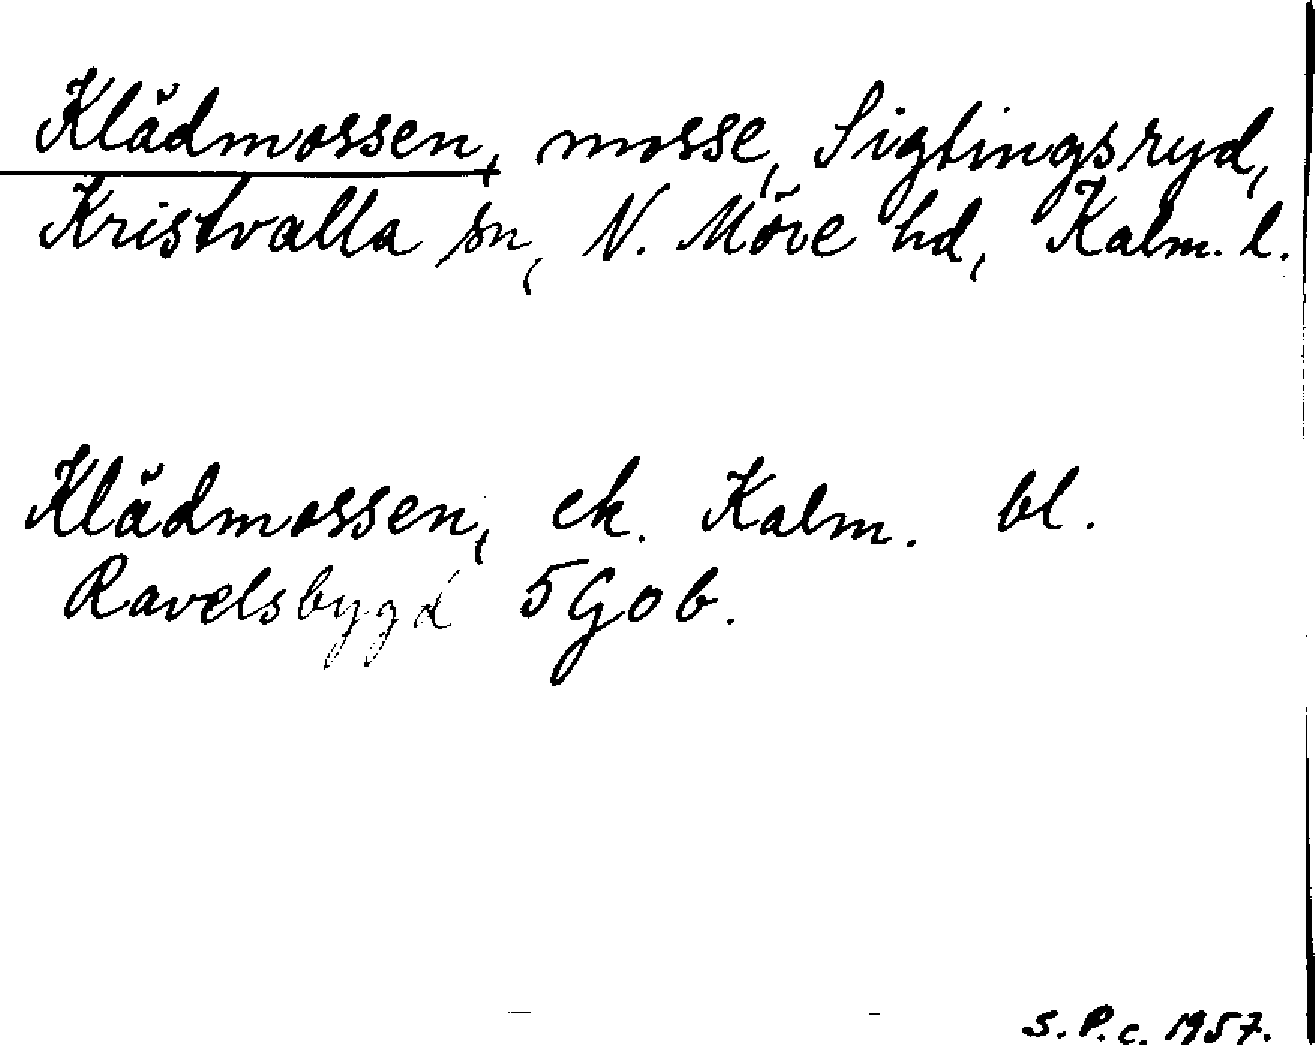 Klädmossen, mosse, Sigtingsryd,
Kristvalla sn, N. Möre hd, Kalm. l.
Klädmossen, ek. Kalm. bl.
Ravelsbygd 5 G o b.
S. P. c. 1957.